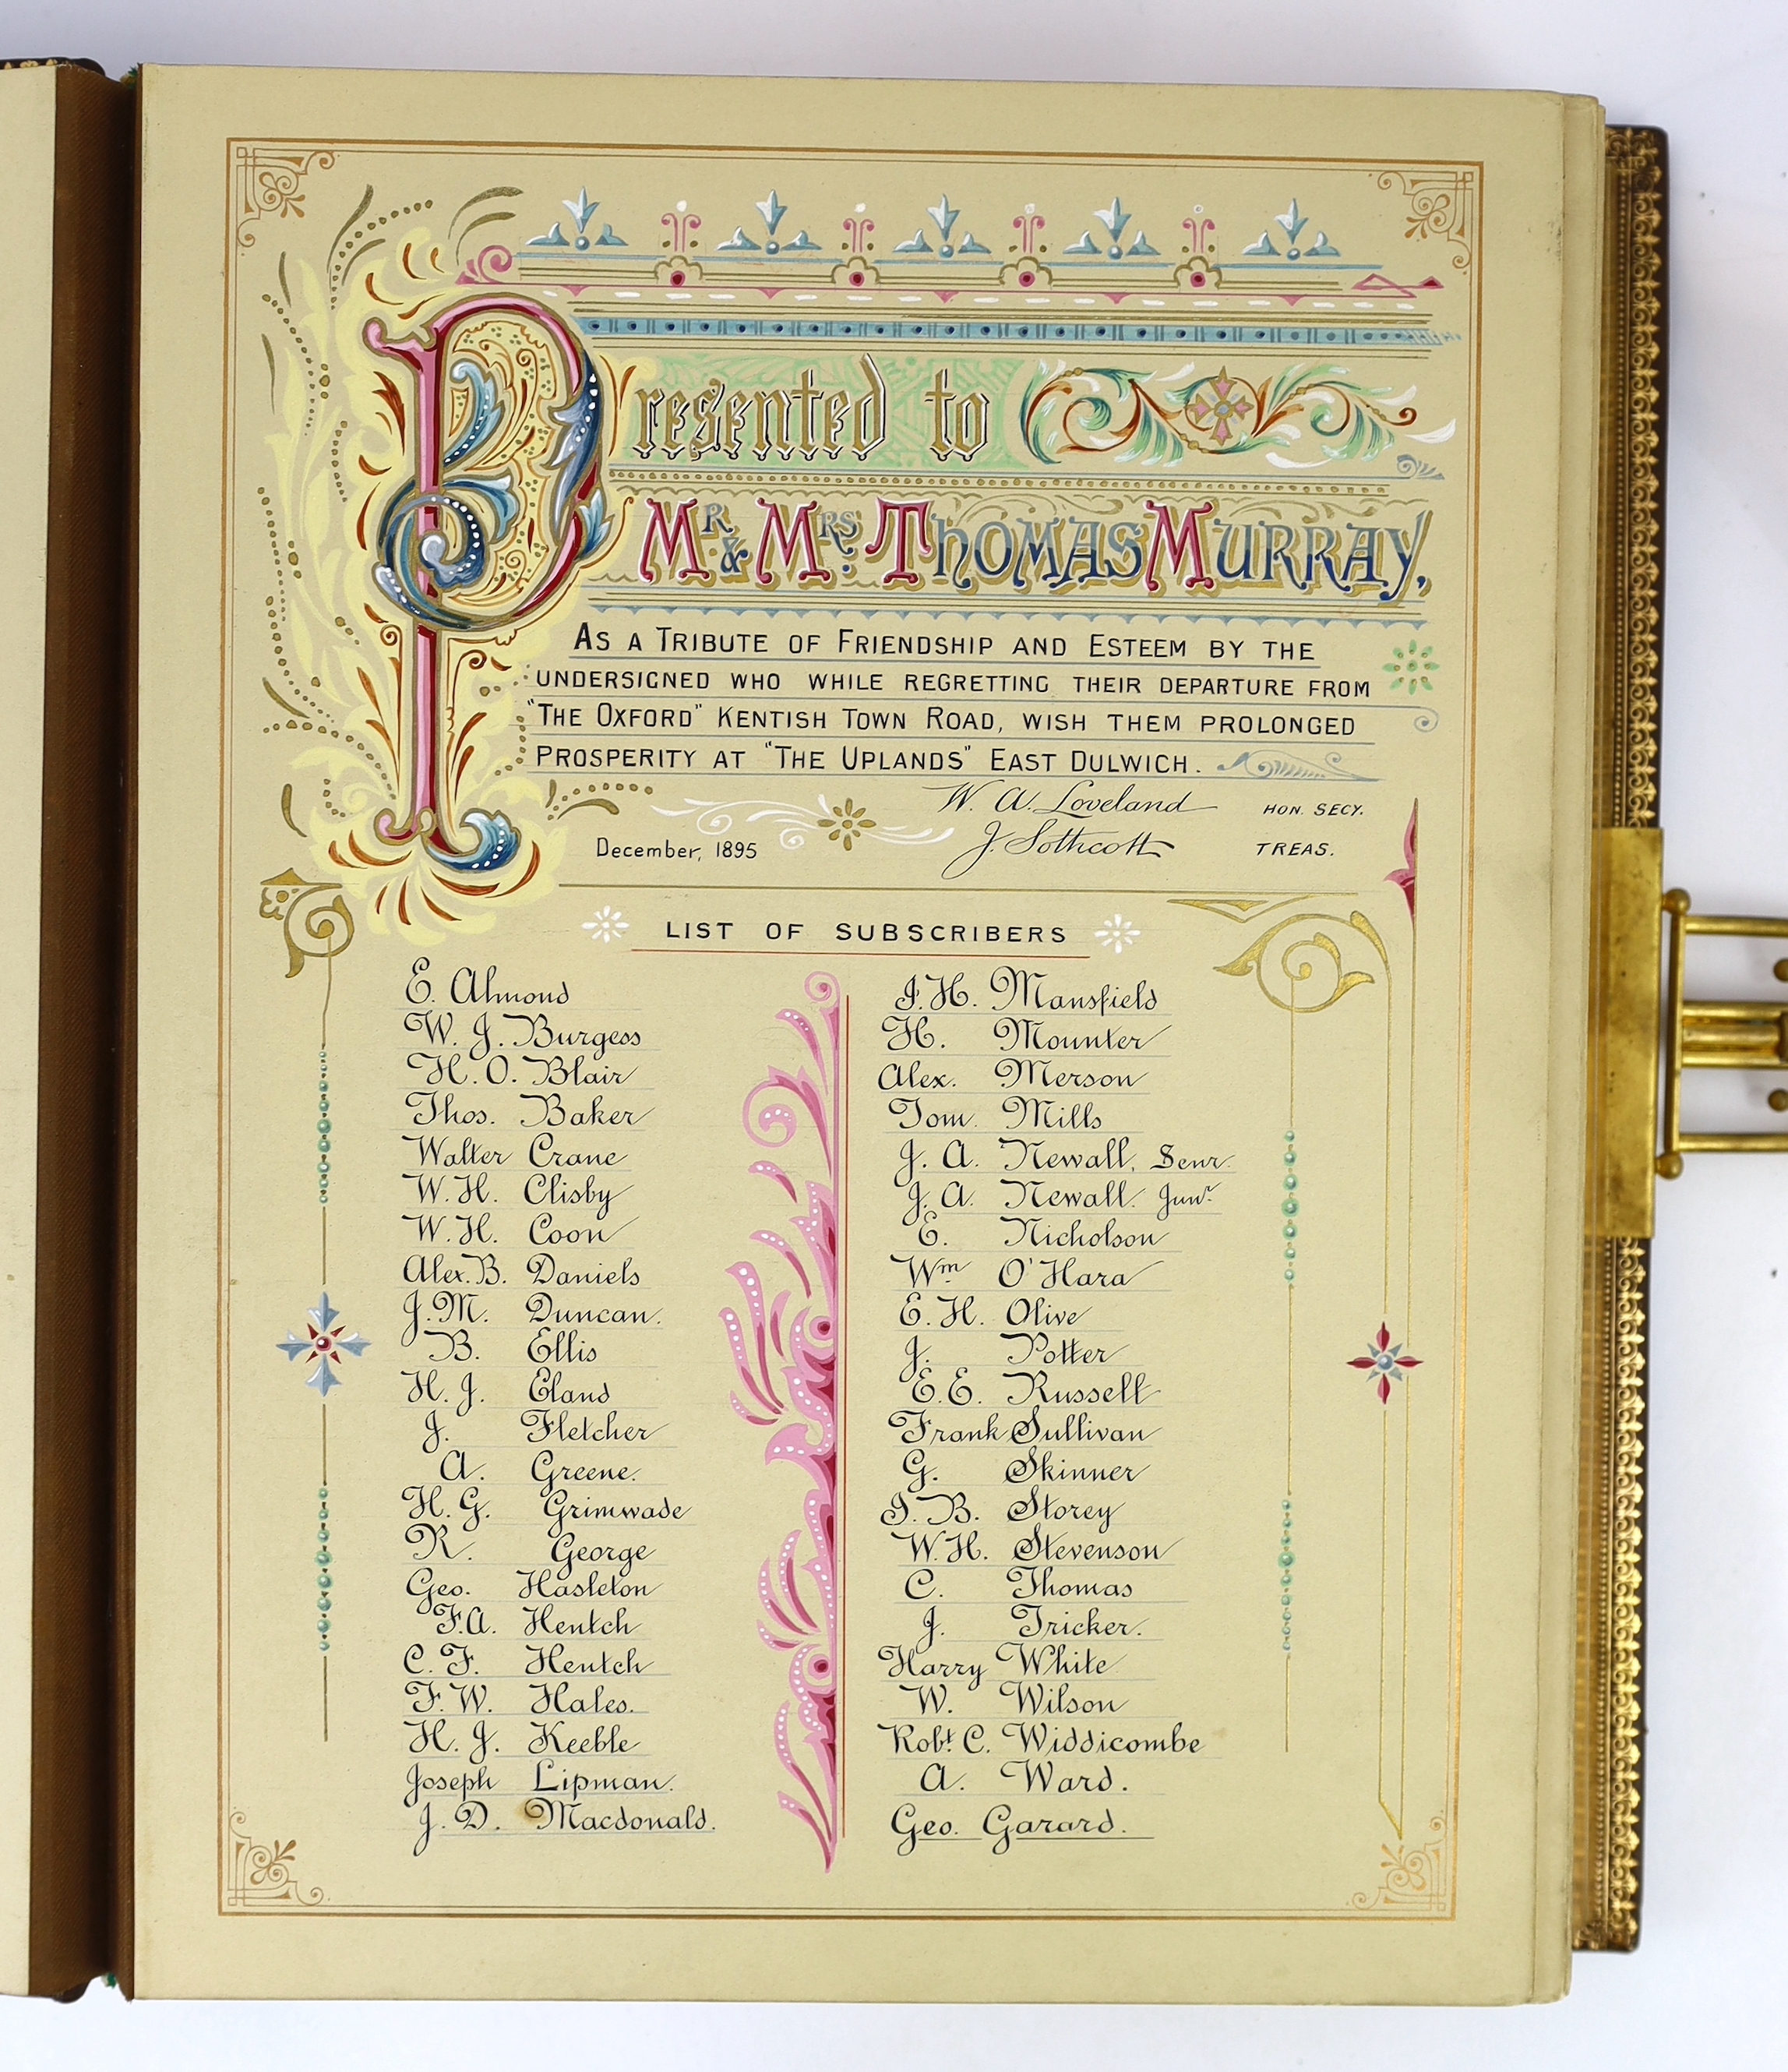 Presented to
Mr. & Mrs. Thomas Murray,
As a Tribute of Friendship and Esteem by the
undersigned who while regretting their departure from
"The Oxford" Kentish Town Road, wish them prolonged
prosperity at "The Uplands" East Dulwich.
W. A. Loveland Hon. Secy.
J. Sothcott Treas.
December, 1895
LIST OF SUBSCRIBERS
E. Almond
W. J. Burgess
H. O. Blair
Thos. Baker
Walter Crane
W. H. Clisby
W. H. Coon
Alex. B. Daniels
J. M. Duncan.
B. Ellis
H. J. Eland
J. Fletcher
A. Greene.
H. G. Grimwade
R. George
Geo. Hasleton
F. A. Hentch
C. F. Hentch
F. W. Hales.
H. J. Keeble
Joseph Lipman.
J. D. Macdonald.
I. H. Mansfield
H. Mounter
Alex. Merson
Tom. Mills
J. A. Newall, Senr.
J. A. Newall. Junr.
E. Nicholson
Wm. O'Hara
E. H. Olive
J. Potter
E. E. Russell
Frank Sullivan
G. Skinner
I. B. Storey
W. H. Stevenson
C. Thomas
J. Tricker.
Harry White
W. Wilson
Robt. C. Widdicombe
A. Ward.
Geo. Garard.